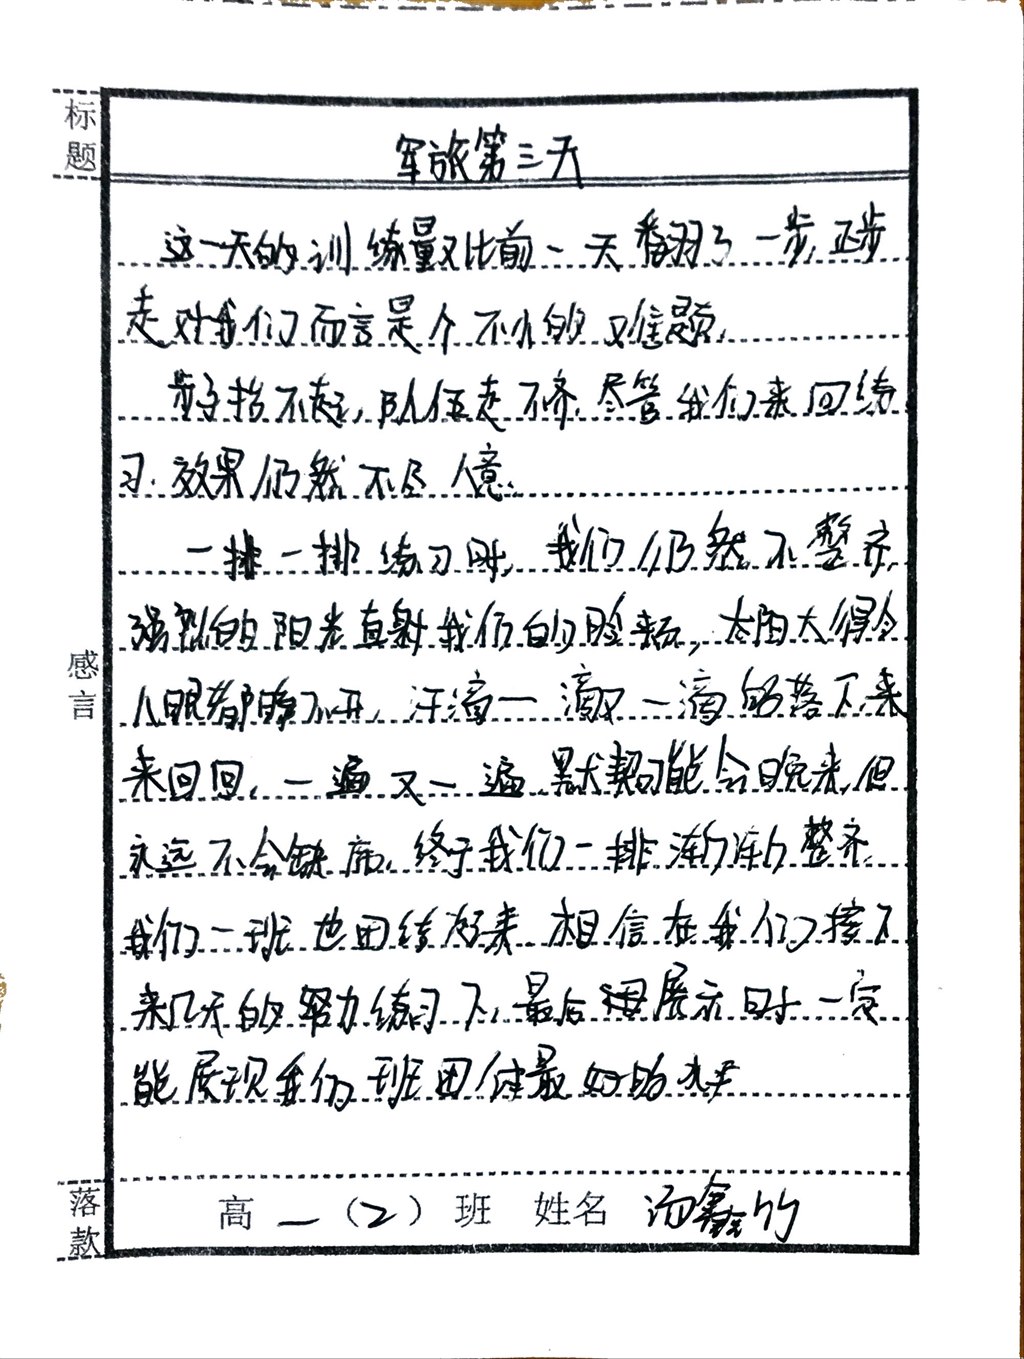 标题
军旅第三天
这一天的训练量又比前一天翻了一步,正步
走对我们而言是个不小的难题,
抬不起,队伍走不齐,尽管我们来回练
习,效果仍然不尽人意。
一排一排练习时,我们仍然不整齐,
强烈的阳光直射我们的脸庞,太阳大得令
人眼都睁不开,汗滴一滴又一滴的落下,来
来回回,一遍又一遍,默契可能会晚来,但
永远不会缺席,终于我们一排渐渐整齐,
我们一班也团结起来,相信在我们接下
来几天的努力练习下,最后展示时一定
能展现我们班团体最好的水平
感言
落款
高一(2)班 姓名 汤鑫竹